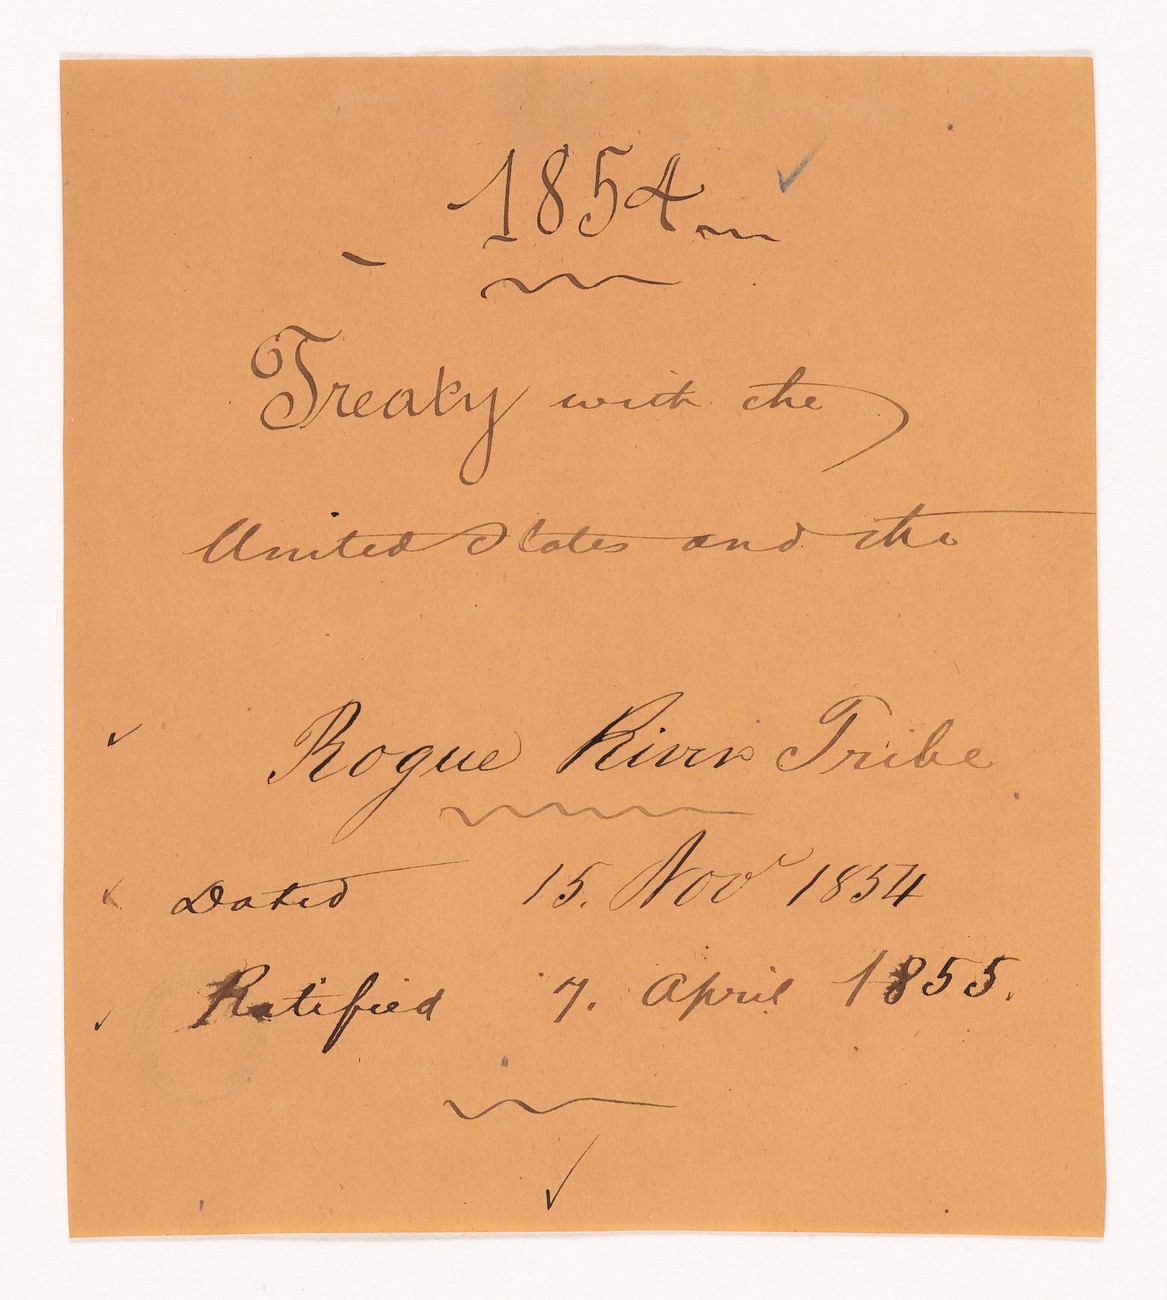 1854
Treaty with the
United States and the
Rogue River Tribe
Dated 15. Novr 1854
Ratified 7. April 1855.